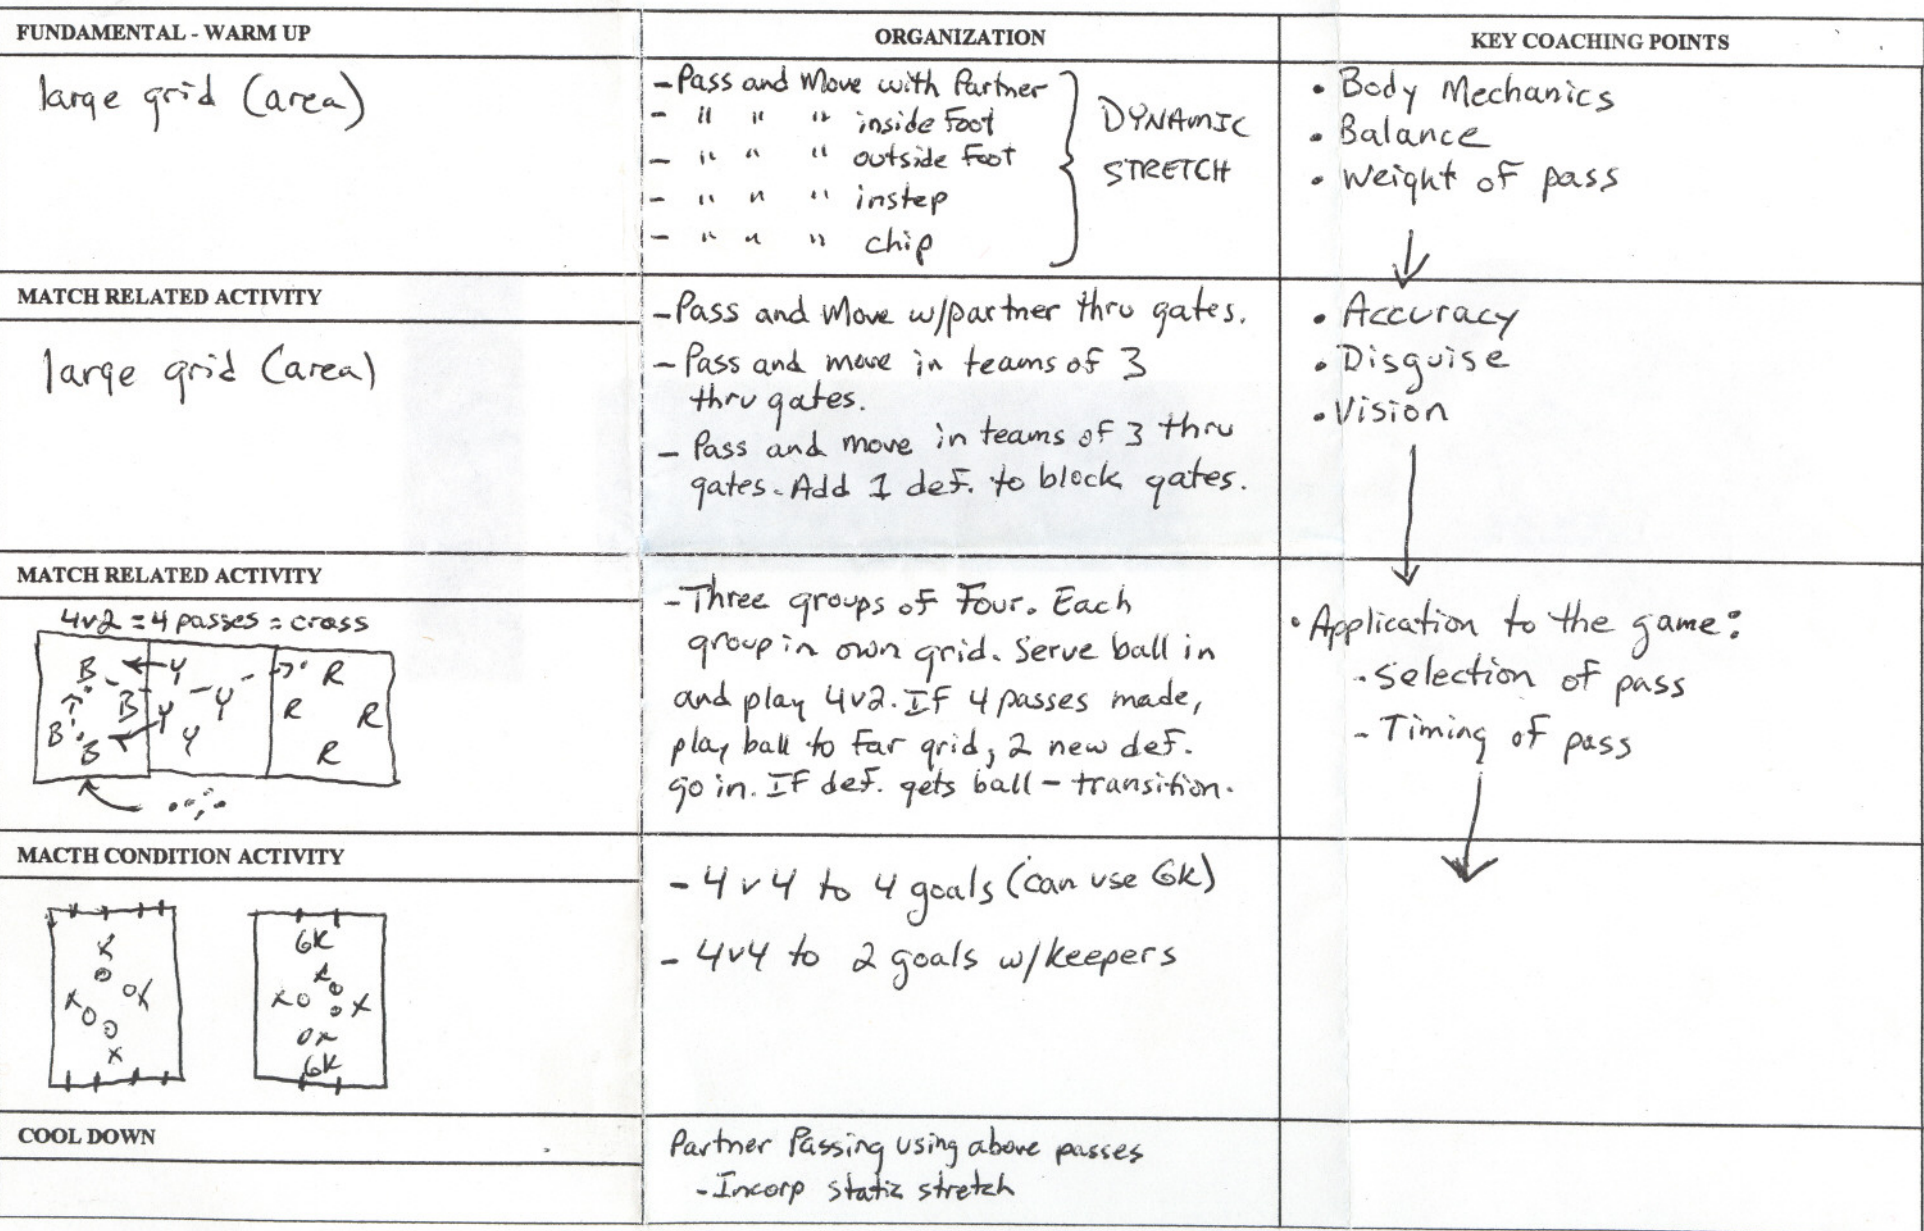 FUNDAMENTAL - WARM UP
ORGANIZATION
KEY COACHING POINTS
large grid (area)
- Pass and Move with Partner
- " " " inside Foot
- " " " outside Foot
- " " " instep
- " " " chip
DYNAMIC
STRETCH
• Body Mechanics
• Balance
• Weight of pass
MATCH RELATED ACTIVITY
large grid (area)
- Pass and Move w/partner thru gates.
- Pass and move in teams of 3
thru gates.
- Pass and move in teams of 3 thru
gates. Add 1 def. to block gates.
• Accuracy
• Disguise
• Vision
MATCH RELATED ACTIVITY
4v2 = 4 passes = cross
B Y R
B Y Y R R
B B Y R
- Three groups of Four. Each
group in own grid. Serve ball in
and play 4v2. If 4 passes made,
play ball to far grid, 2 new def.
go in. If def. gets ball - transition.
• Application to the game:
- Selection of pass
- Timing of pass
MACTH CONDITION ACTIVITY
X
O
X O X
O O
X
GK
X
X O O
O X
O X
GK
- 4v4 to 4 goals (can use GK)
- 4v4 to 2 goals w/keepers
COOL DOWN
Partner Passing using above passes
- Incorp static stretch